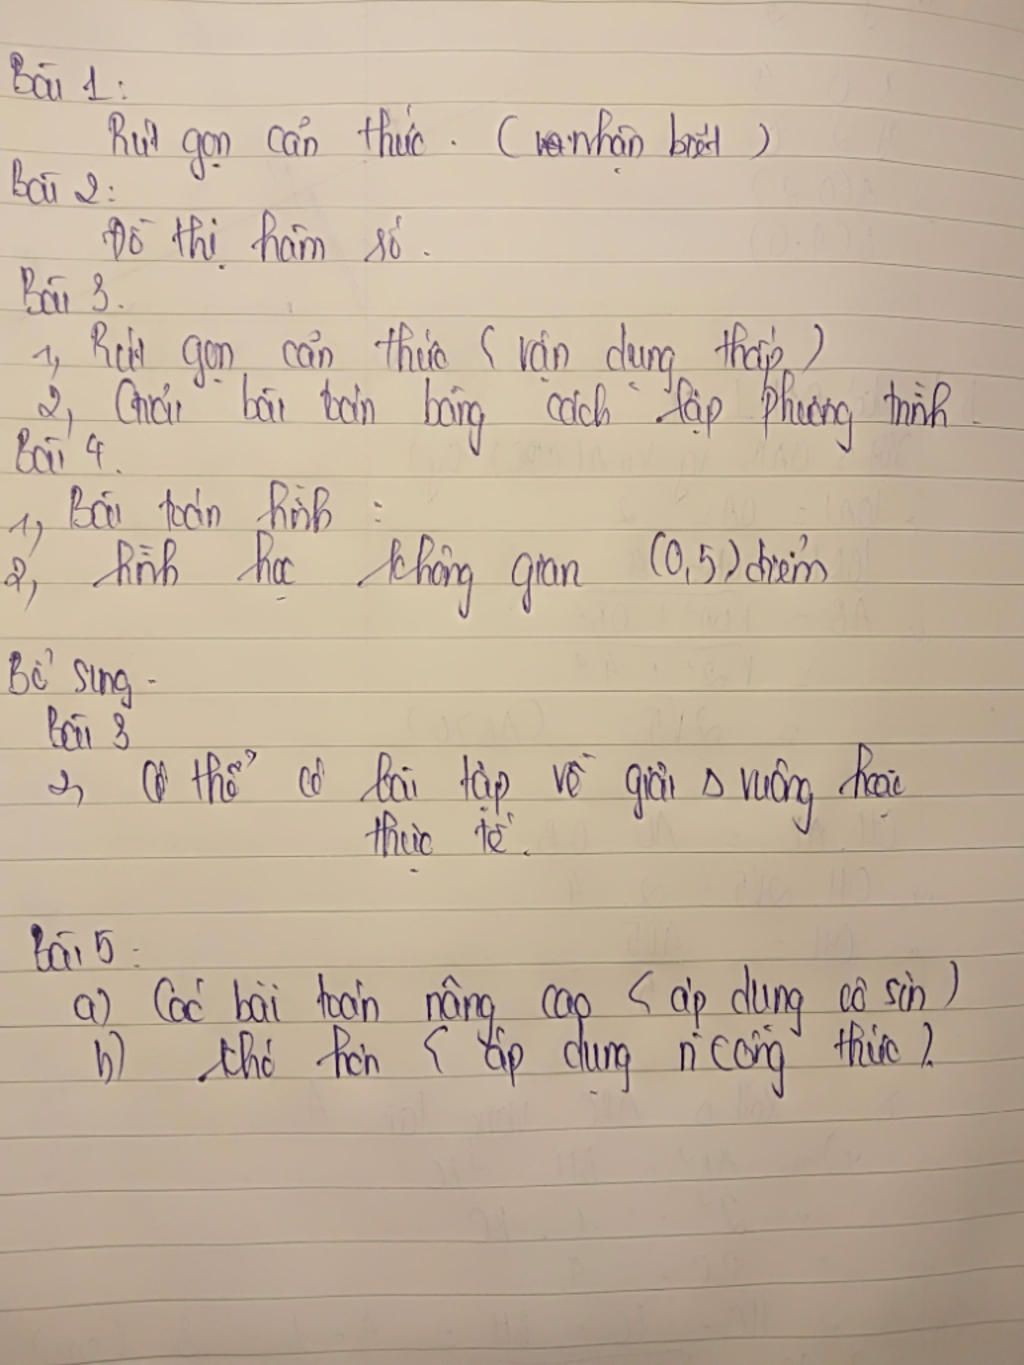 Bài 1:
Rút gọn căn thức. (nhận biết)
Bài 2:
Đồ thị hàm số.
Bài 3.
1, Rút gọn căn thức (vận dụng thấp)
2, Giải bài toán bằng cách lập phương trình.
Bài 4.
1, Bài toán hình:
2, hình học không gian (0,5) điểm
Bổ sung -
Bài 3
2, Có thể có bài tập về giải Δ vuông hoặc
thực tế.
Bài 5:
a) Các bài toán nâng cao (áp dụng cô sin)
b) khó hơn (áp dụng n' công thức).